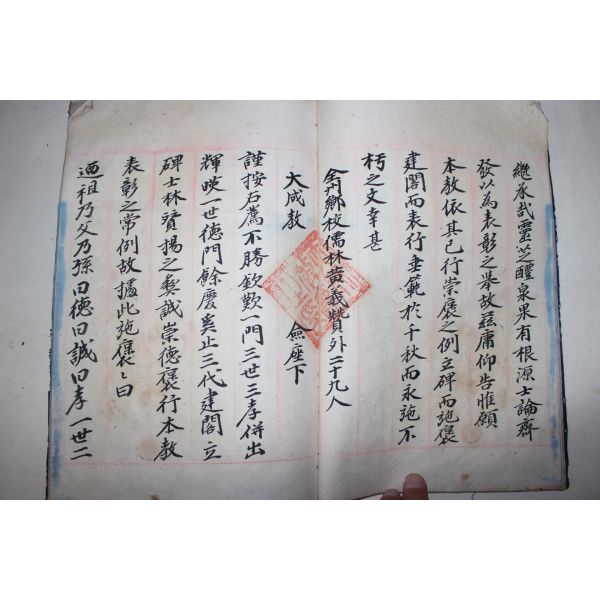 繼養哉靈芝醴泉果有根源士論齊
發以爲表彰之擧故玆庸仰告惟願
本教依其已行崇褒之例立碑而施褒
建閣而表行垂範於千秋而永施不
朽之文幸甚
全州鄕校儒林黃義贊外二十九人
大成教 僉座下
謹按右薦不勝欽歎一門三世三孝併出
輝暎一世德門餘慶奚止三代建閣立
碑士林贊揚之契誠崇德褒行本教
表彰之常例故據此施褒々曰
廼祖乃父乃孫曰德曰誠曰孝一世二